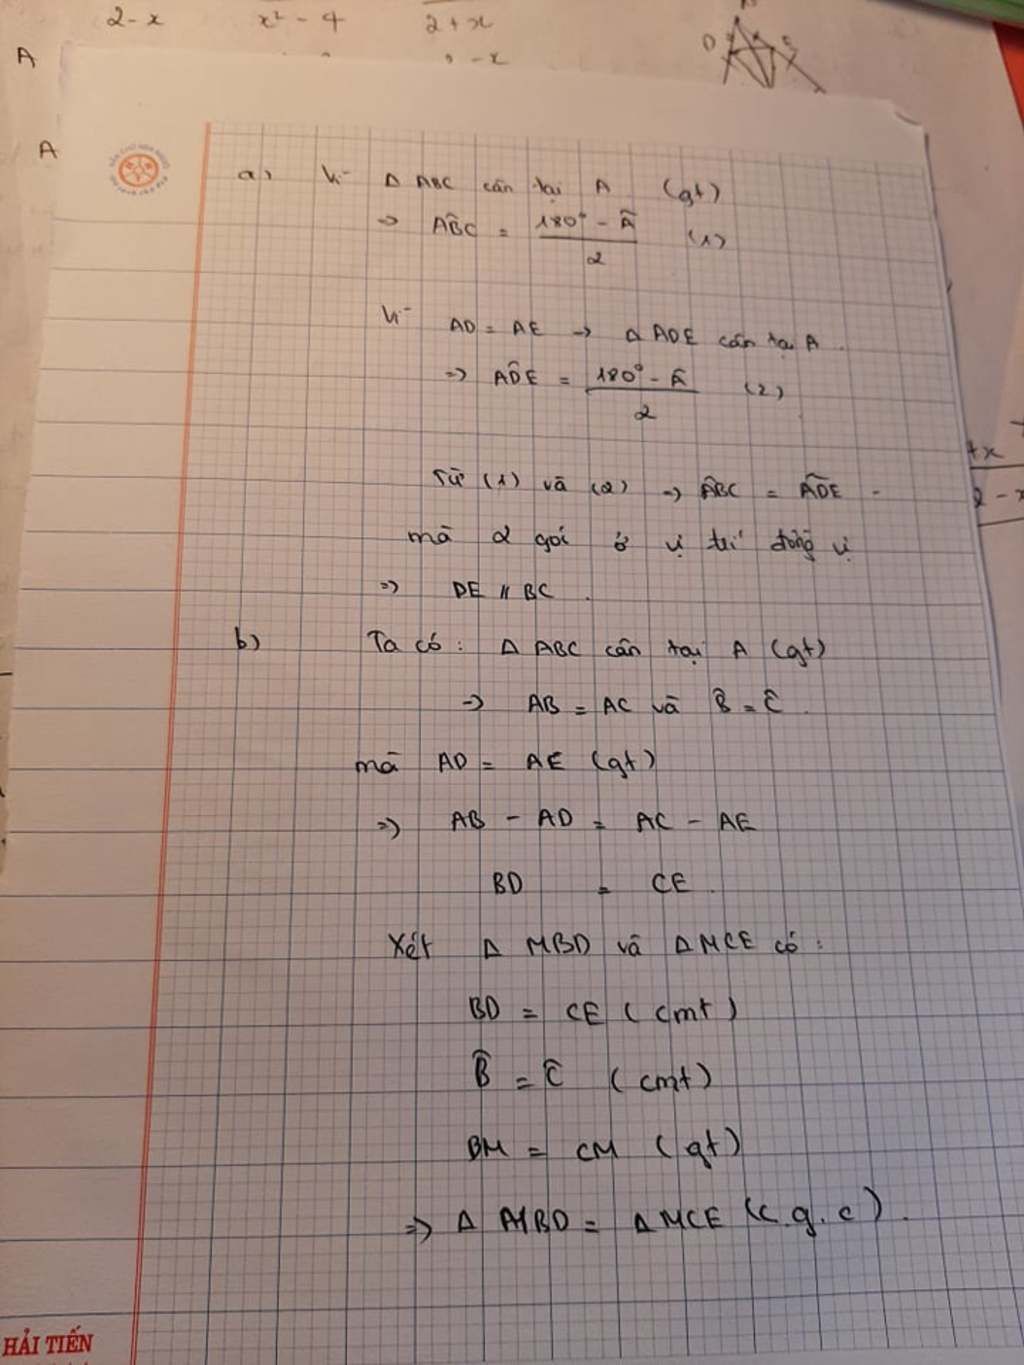 2-x x² - 4 2+x
A
-x
D E
A
a) Vì Δ ABC cân tại A (gt)
=> ABC = 180° - Â / 2 (1)
Vì AD = AE → Δ ADE cân tại A.
=> ADE = 180° - Â / 2 (2)
+x
2-x
Từ (1) và (2) => ABC = ADE
mà 2 góc ở vị trí đồng vị
=> DE // BC.
b) Ta có: Δ ABC cân tại A (gt)
=> AB = AC và B̂ = Ĉ.
mà AD = AE (gt)
=> AB - AD = AC - AE
BD = CE.
Xét Δ MBD và Δ MCE có:
BD = CE (cmt)
B̂ = Ĉ (cmt)
BM = CM (gt)
=> Δ MBD = Δ MCE (c.g.c).
HẢI TIẾN